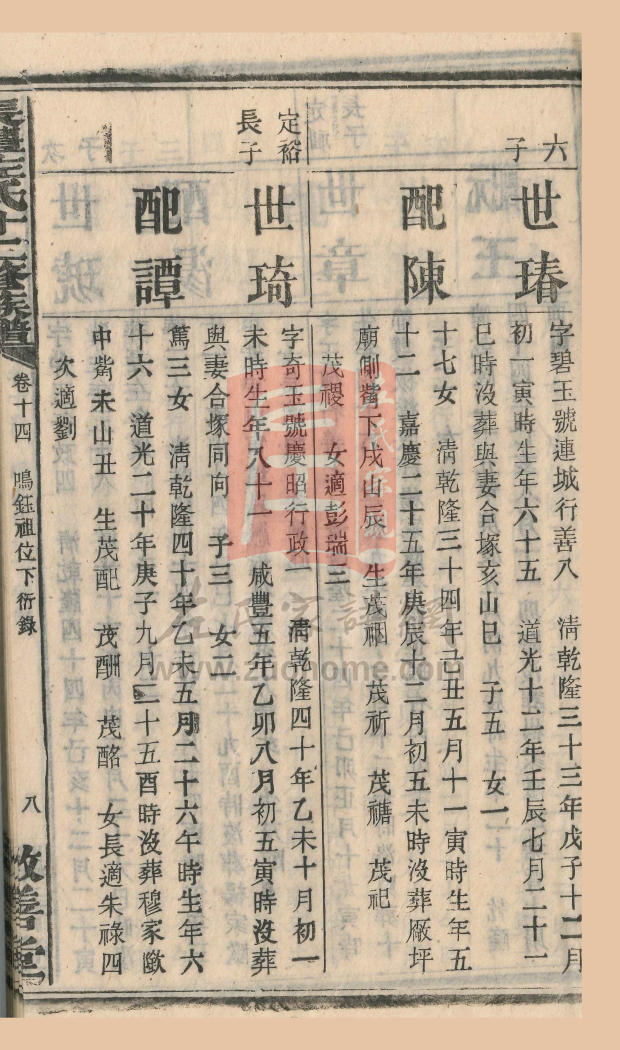 六子
世瑃
字碧玉號連城行善八 清乾隆三十三年戊子十二月
初一寅時生年六十五 道光十二年壬辰七月二十一
巳時沒葬與妻合塚亥山巳 子五 女一
配陳
十七女 清乾隆三十四年己丑五月十一寅時生年五
十二 嘉慶二十五年庚辰十二月初五未時沒葬廠坪
廟側觜下戌山辰 生茂祵 茂祈 茂禟 茂祀
茂禝 女適彭瑞三
定裕長子
世琦
字奇玉號慶昭行政一 清乾隆四十年乙未十月初一
未時生年八十一 咸豐五年乙卯八月初五寅時沒葬
與妻合塚同向 子三 女二
配譚
篤三女 清乾隆四十年乙未五月二十六午時生年六
十六 道光二十年庚子九月二十五酉時沒葬穆家
中觜未山丑 生茂配 茂酬 茂酩 女長適朱祿四
次適劉
氏十二修族譜
卷十四 鳴鈺祖位下衍錄
八
敦善堂
左氏家譜網
www.zuohome.com